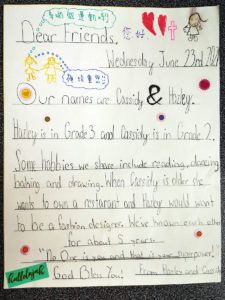 Dear Friends,
您好
Wednesday June 23rd 2021
Our names are Cassidy & Hailey.
Hailey is in Grade 3 and Cassidy is in Grade 2.
Some hobbies we share include reading, dancing,
baking and drawing. When Cassidy is older she
wants to own a restarant and Hailey would want
to be a fashion designer. We've known each other
for about 5 years.
"No One is you and that is your superpower!"
God Bless You!
From Hailey and Cassidy
Hallelujah